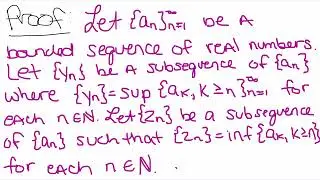 Proof Let {aₙ}ₙ₌₁^∞ be a
bounded sequence of real numbers.
Let {yₙ} be a subsequence of {aₙ}
where {yₙ}=sup{aₖ, k≥n}ₙ₌₁^∞ for
each n∈ℕ. Let {zₙ} be a subsequence
of {aₙ} such that {zₙ}=inf{aₖ, k≥n}
for each n∈ℕ.